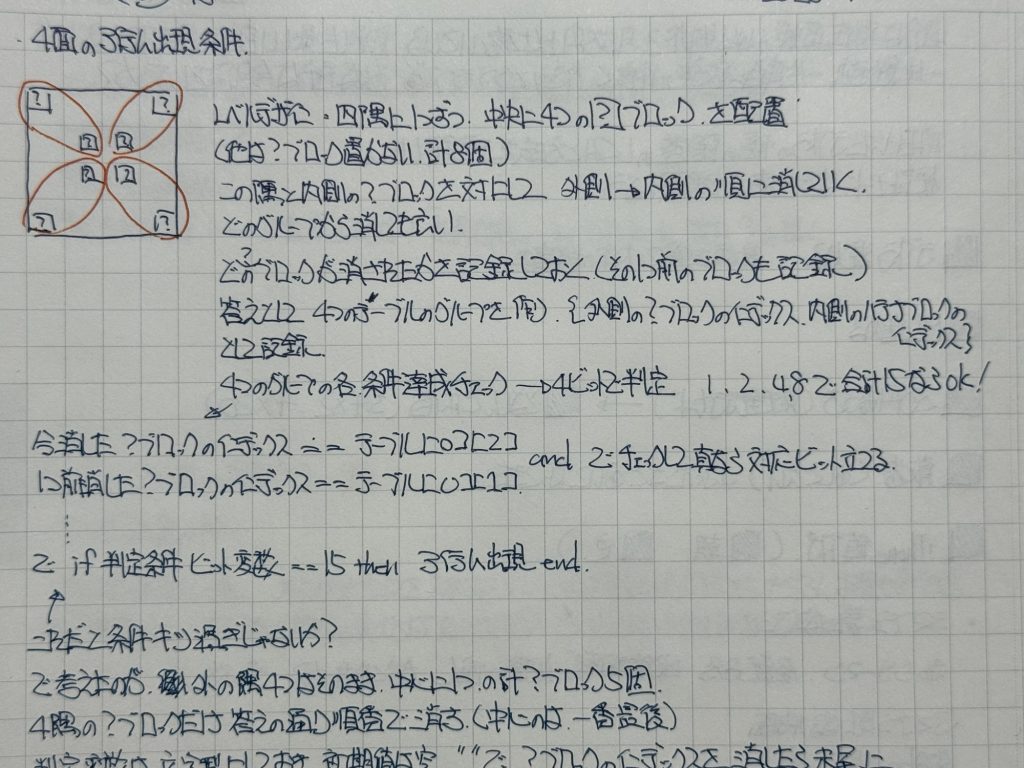 ・4面のろうそく出現条件.
レベルデザイン・四隅に1つずつ. 中央に4つの[?]ブロック を配置
(他は?ブロック置かない. 計8個)
この隅と内側の?ブロックを対にして 外側→内側の順に消していく.
どのグループから消しても良い.
どの?ブロックが消されたかを記録しておく(その1つ前のブロックも記録)
答えとして 4つのテーブルのグループを(例) {外側の?ブロックのインデックス. 内側のハテナブロックの
インデックス}
として記録.
4つのグループの各.条件達成チェック →4ビットで判定 1. 2. 4, 8で合計15ならOK!
今消した?ブロックのインデックス == テーブル[0][2]
1つ前消した?ブロックのインデックス == テーブル[0][1].
and でチェックして真なら対応ビット立てる.
で if 判定条件ビット変数 == 15 then ろうそく出現 end.
→ただこれ条件キツ過ぎじゃないか?
で考えたのが. 外の隅4つはそのまま. 中心に1つ. の計?ブロック5個.
4隅の?ブロックだけ 答えの通り順番で消す.(中心のは 一番最後)
判定変数は 文字型にしておき 初期値は空 ""で. ?ブロックのインデックスを 消したら末尾に